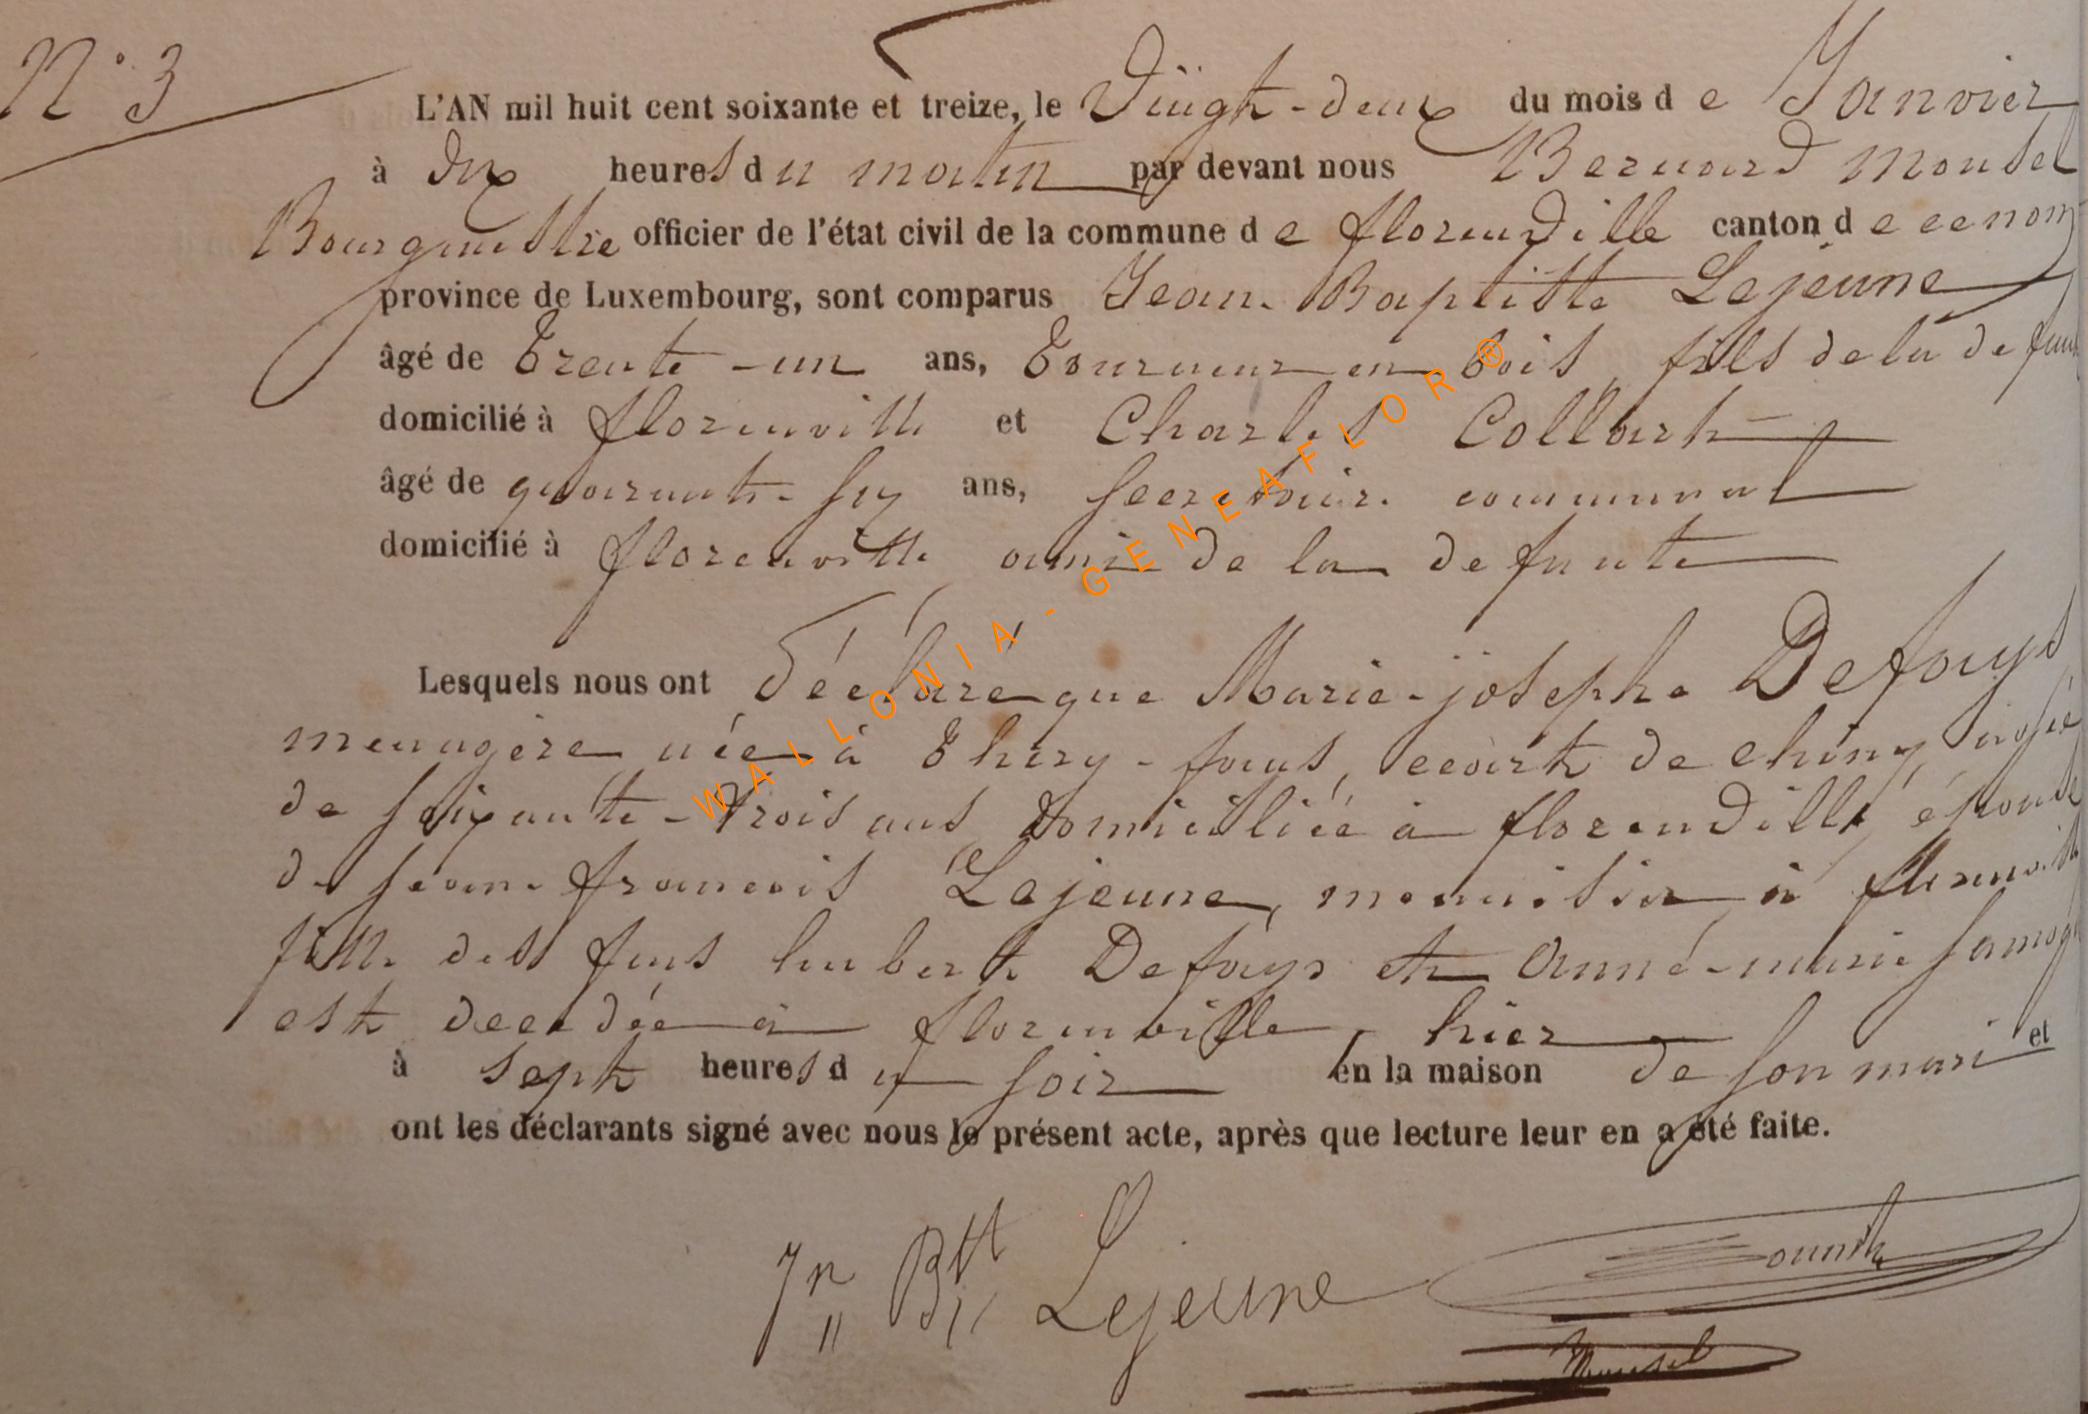 N° 3
L'AN mil huit cent soixante et treize, le Vingt-deux du mois de Janvier
à dix heures du matin par devant nous Bernard Mousel
Bourgmestre officier de l'état civil de la commune de florenville canton de ce nom
province de Luxembourg, sont comparus Jean-Baptiste Lejeune
âgé de Trente-un ans, Tourneur en bois, fils de la defunte
domicilié à florenville et Charles Collart
âgé de quarante-six ans, secretaire communal
domicilié à florenville ami de la defunte
Lesquels nous ont déclaré que Marie-josephe Defouys
menagère née à Thiry-fays, écart de chiny, agée
de soixante-trois ans domiciliée à florenville, épouse
de jean-francois Lejeune, menuisier à florenville
fille des feus hubert Defouys et Anne-marie
est decedée à florenville, hier
à sept heures du soir en la maison de son mari et
ont les déclarants signé avec nous le présent acte, après que lecture leur en a été faite.
Jn Btte Lejeune
Mousel
WALLONIA-GENEAFLOR®